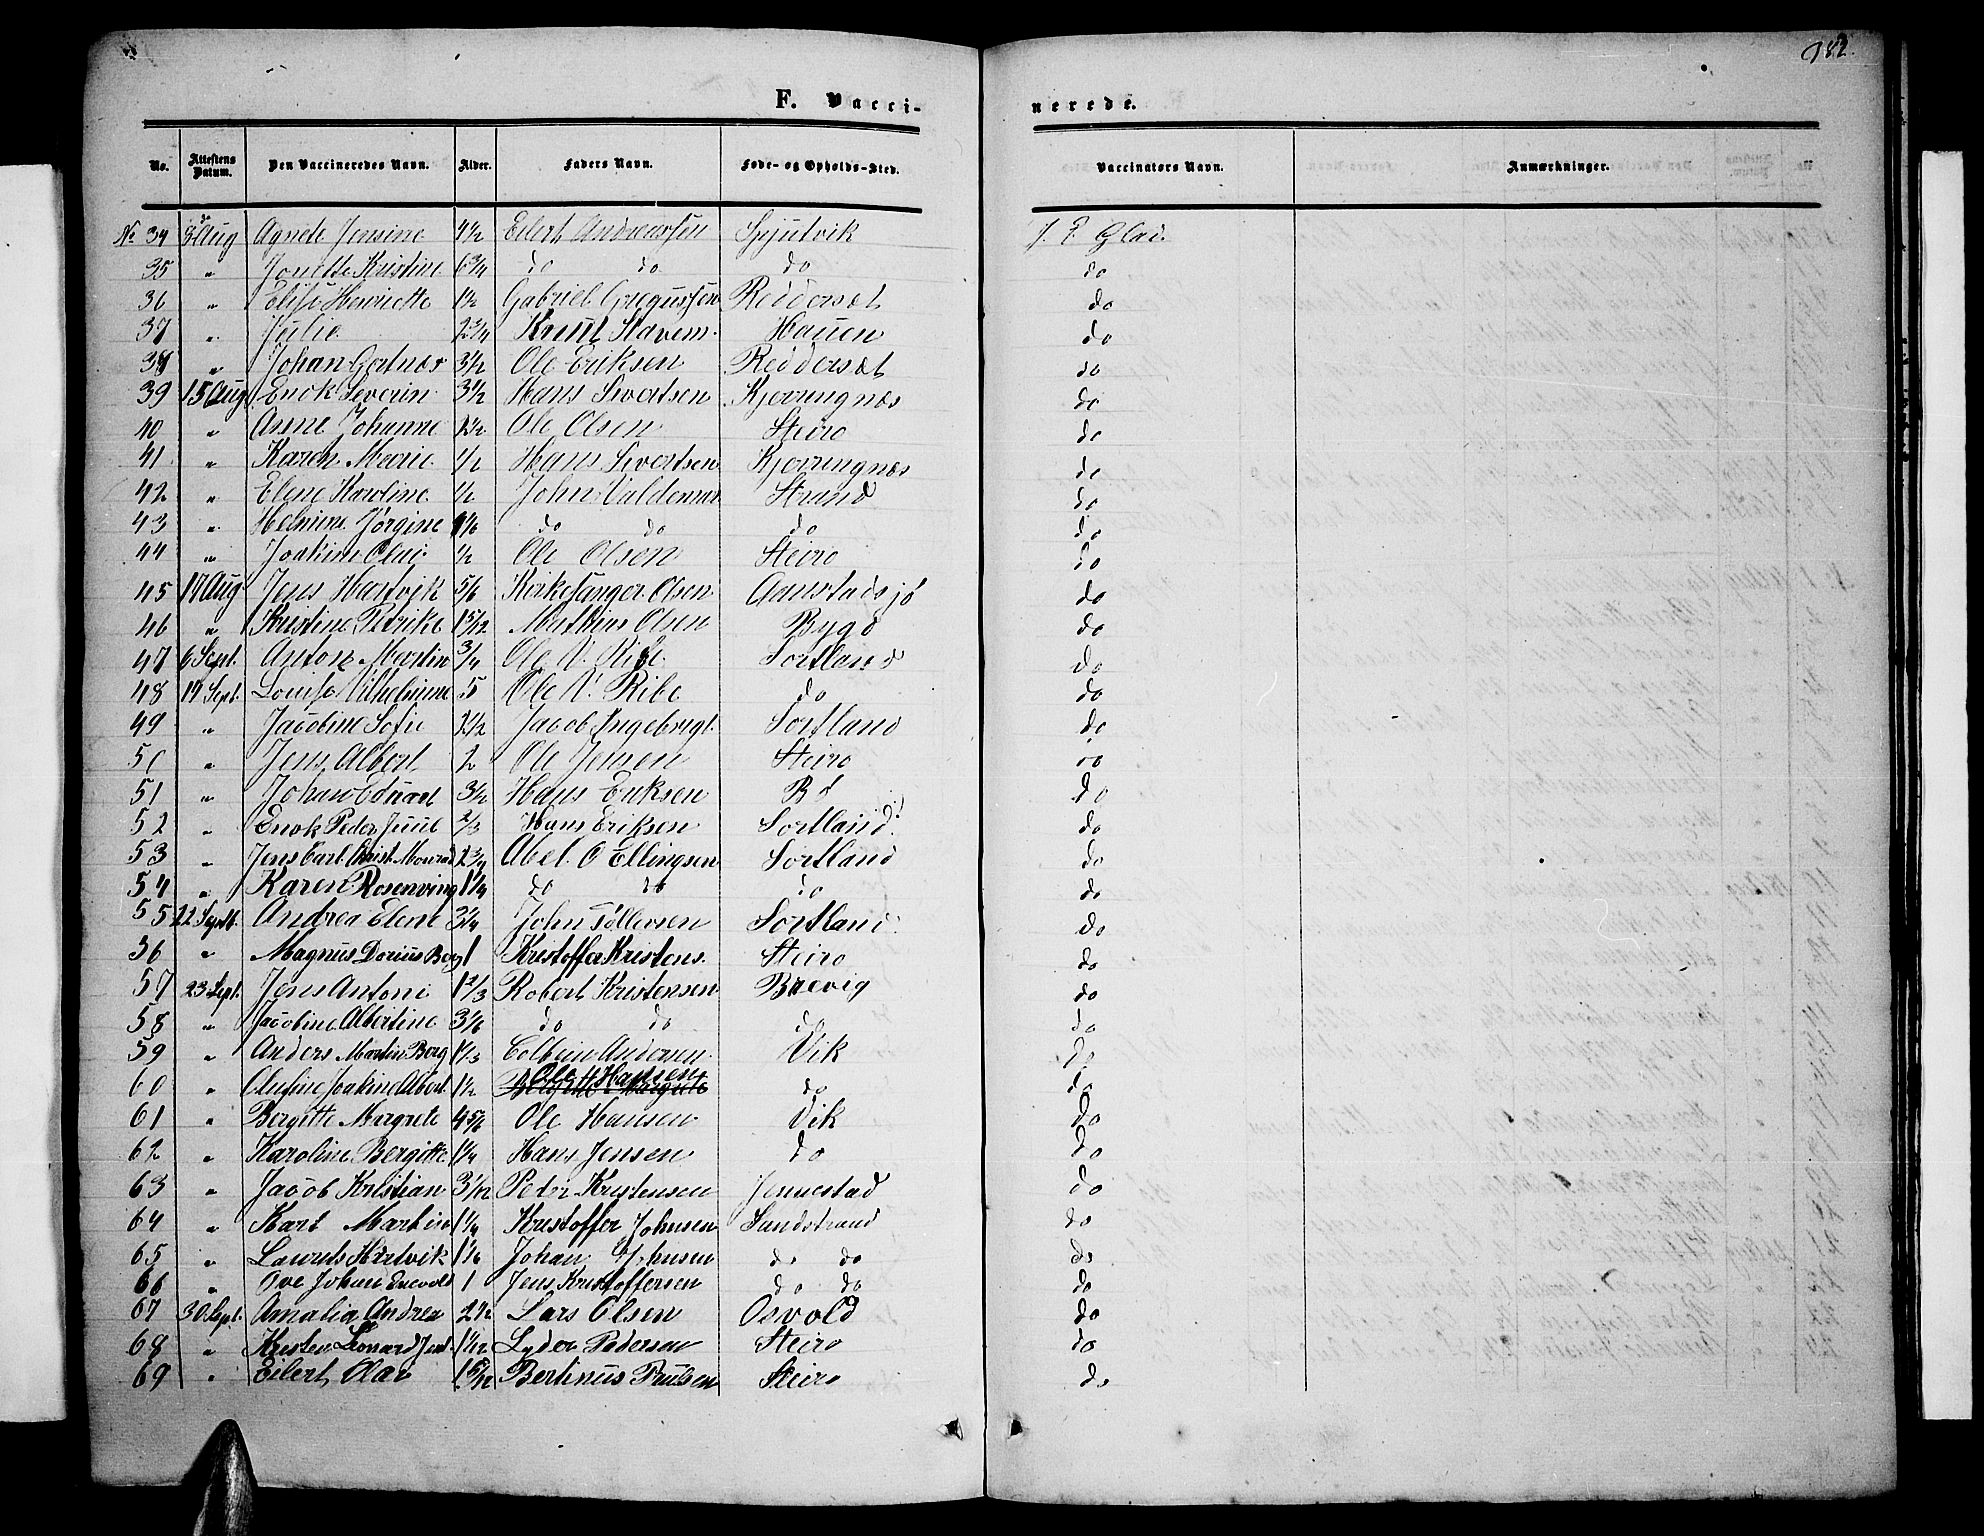 982.
F. Vacci-
nerede.
No. Attestens Datum. Den Vaccineredes Navn. Alder. Faders Navn. Føde- og Opholds-Sted. Vaccinators Navn. Anmærkninger.
No 34 Aug Agnete Jensine 1½ Eilert Andreassen J. E.
35 " Jonette Kristine 6¾ do do do do
36 " Elise Henriette 1½ Gabriel Gregussen Reddersæt do
37 " Julie 2¾ Knut Stavem. Hauen do
38 " Johan Gertner 3½ Ole Eriksen Reddersæt do
39 15 Aug Enok Severin 3½ Hans Sivertsen Kjerringnæs do
40 " Anne Johanne 2½ Ole Olsen Steiro do
41 " Karen Marie ½ Hans Sivertsen Kjerringnæs do
42 " Elene Karoline ½ John Valdemar Strand do
43 " Helmine Jørgine do do do do
44 " Joakim Olai ½ Ole Olsen Steiro do
45 17 Aug Jens Hartvik 5/6 Kirkesanger Olsen Aanstadsjø do
46 " Kristine Petrike 1 5/12 Mathias Olsen Bygd do
47 6 Sept. Anton Martin ¾ Ole N. Ribe Sortland do
48 19 Sept. Louise Vilhelmine 5 Ole N. Ribe do do
49 " Jacobine Sofie 2½ Jacob Ingebrigt. Sortland do
50 " Jens Albert 2 Ole Jensen Steiro do
51 " Johan Eduard 3½ Hans Eriksen Bø do
52 " Enok Peder Juul 2/3 Hans Eriksen Sortland do
53 " Jens Carl Christ. Monrad 2¾ Abel O Ellingsen Sortland do
54 " Karen Rosenving 1¼ do do do do
55 22 Sept. Andrea Elene 3¼ John Tøllevsen Sortland do
56 " Magnus Dorius Berg 1 Kristoffer Kristens. Steiro do
57 23 Sept. Jens Antoni 1 2/3 Robert Kristensen Brevig do
58 " Jacobine Albertine 3 1/6 do do do do
59 " Anders Martin Berg 1 1/3 Colbein Andersen Vik do
60 " Joakine Albert. 1½ Ole Hansen do do
61 " Bergitte Margrete 4 5/6 Ole Hansen Vik do
62 " Karoline Bergitte 1¼ Hans Jensen do do
63 " Jacob Kristian 3 1/12 Peder Kristensen Jennestad do
64 " Karl Martin 1¼ Kristoffer Johnsen Sandstrand do
65 " Laurits Hartvik 1 1/6 Johan Johnsen do do do
66 " Ove Johan Enevold 1 Jens Kristoffersen do do do
67 30 Sept. Amalia Andrea 2½ Lars Olsen Osvold do
68 " Kristen Leonard Jent. 1 1/12 Lyder Pedersen Steiro do
69 " Eilert Olai 1 5/12 Bertinus Paulsen Steiro do